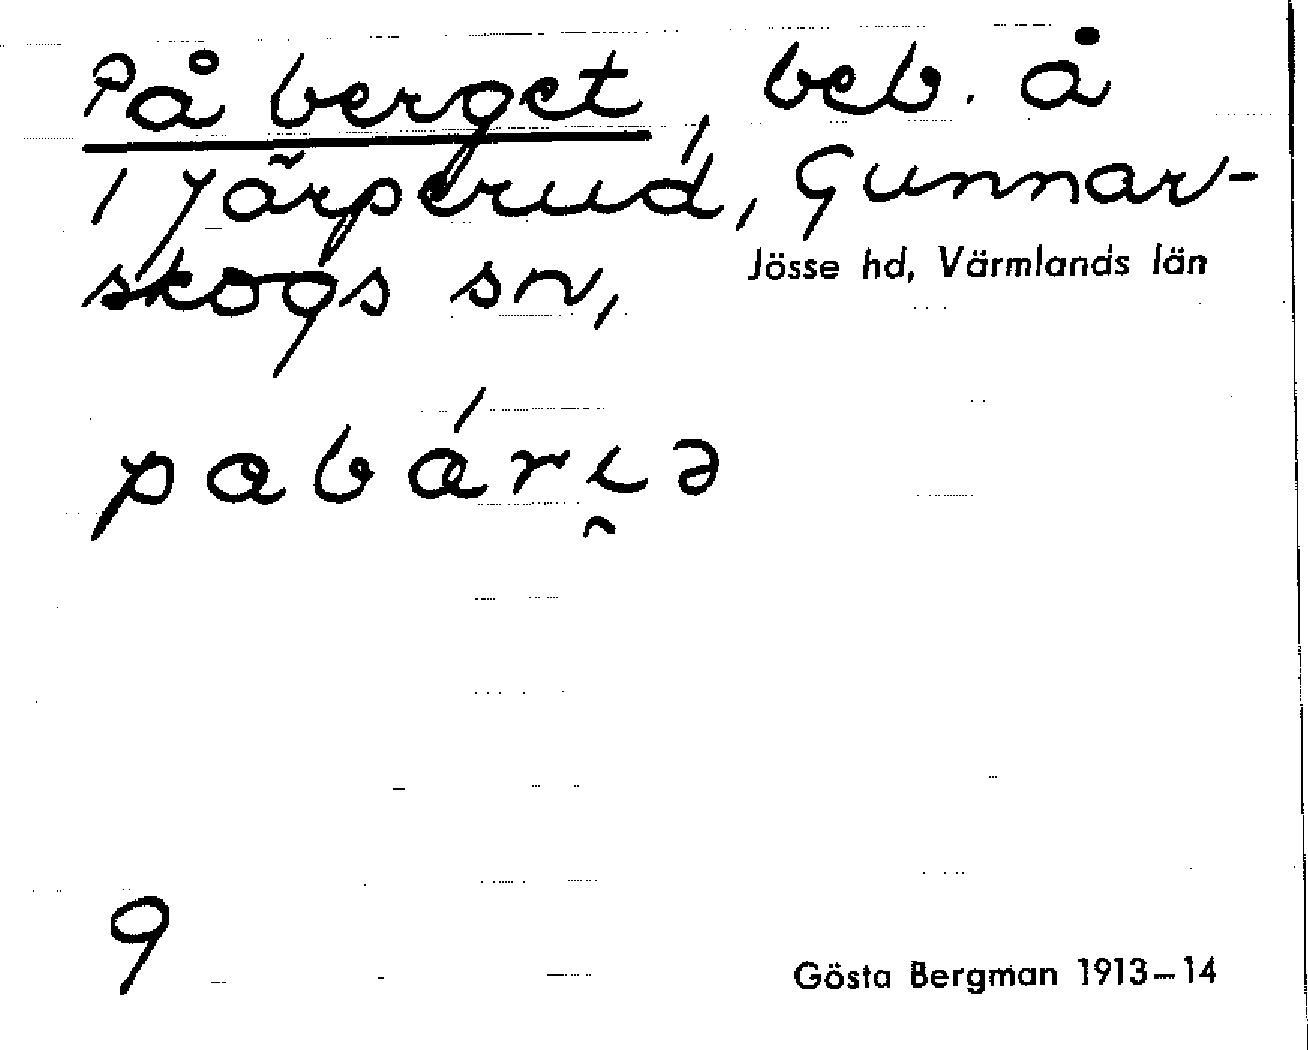 På berget, beb. å
1 Järperud, Gunnar-
skogs sn,
Jösse hd, Värmlands län
pabári̯ə
9
Gösta Bergman 1913–14